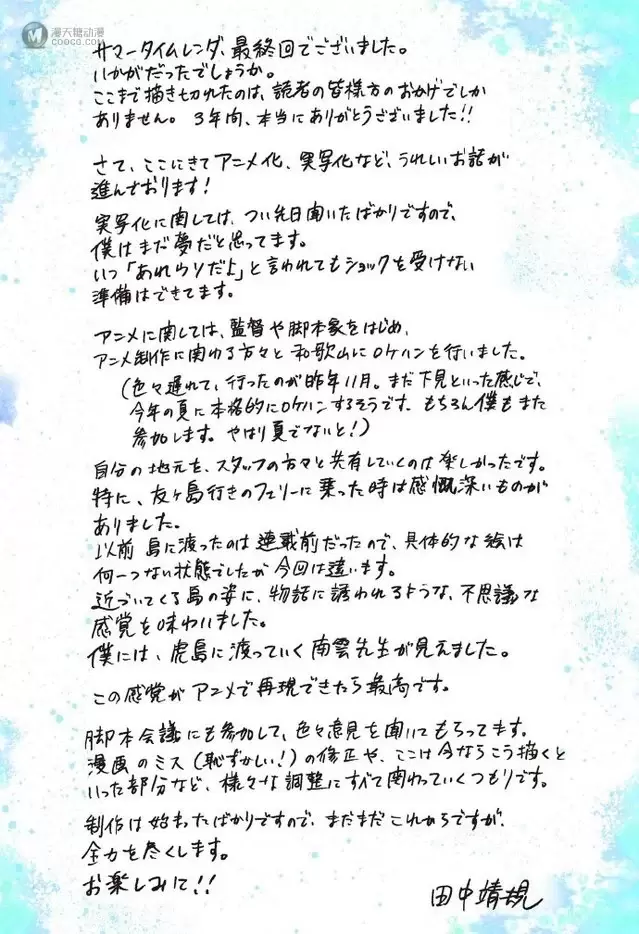 漫天糖动漫
COOCO.COM
サマータイムレンダ、最終回でございました。
いかがだったでしょうか。
ここまで描き切れたのは、読者の皆様方のおかげでしか
ありません。3年間、本当にありがとうございました!!
さて、ここにきてアニメ化、実写化など、うれしいお話が
進んでおります!
実写化に関しては、つい先日聞いたばかりですので、
僕はまだ夢だと思ってます。
いつ「あれウソだよ」と言われてもショックを受けない
準備はできてます。
アニメに関しては、監督や脚本家をはじめ、
アニメ制作に関わる方々と和歌山にロケハンを行いました。
(色々遅れて、行ったのが昨年11月。まだ下見といった感じで、
今年の夏に本格的にロケハンするそうです。もちろん僕もまた
参加します。やはり夏でないと!)
自分の地元を、スタッフの方々と共有していくのは楽しかったです。
特に、友ヶ島行きのフェリーに乗った時は感慨深いものが
ありました。
以前島に渡ったのは連載前だったので、具体的な絵は
何一つない状態でしたが今回は違います。
近づいてくる島の姿に、物語に誘われるような、不思議な
感覚を味わいました。
僕には、虎島に渡っていく南雲先生が見えました。
この感覚がアニメで再現できたら最高です。
脚本会議にも参加して、色々意見を聞いてもらってます。
漫画のミス(恥ずかしい!)の修正や、ここは今ならこう描くと
いった部分など、様々な調整にすべて関わっていくつもりです。
制作は始まったばかりですので、まだまだこれからですが、
全力を尽くします。
お楽しみに!!
田中靖規